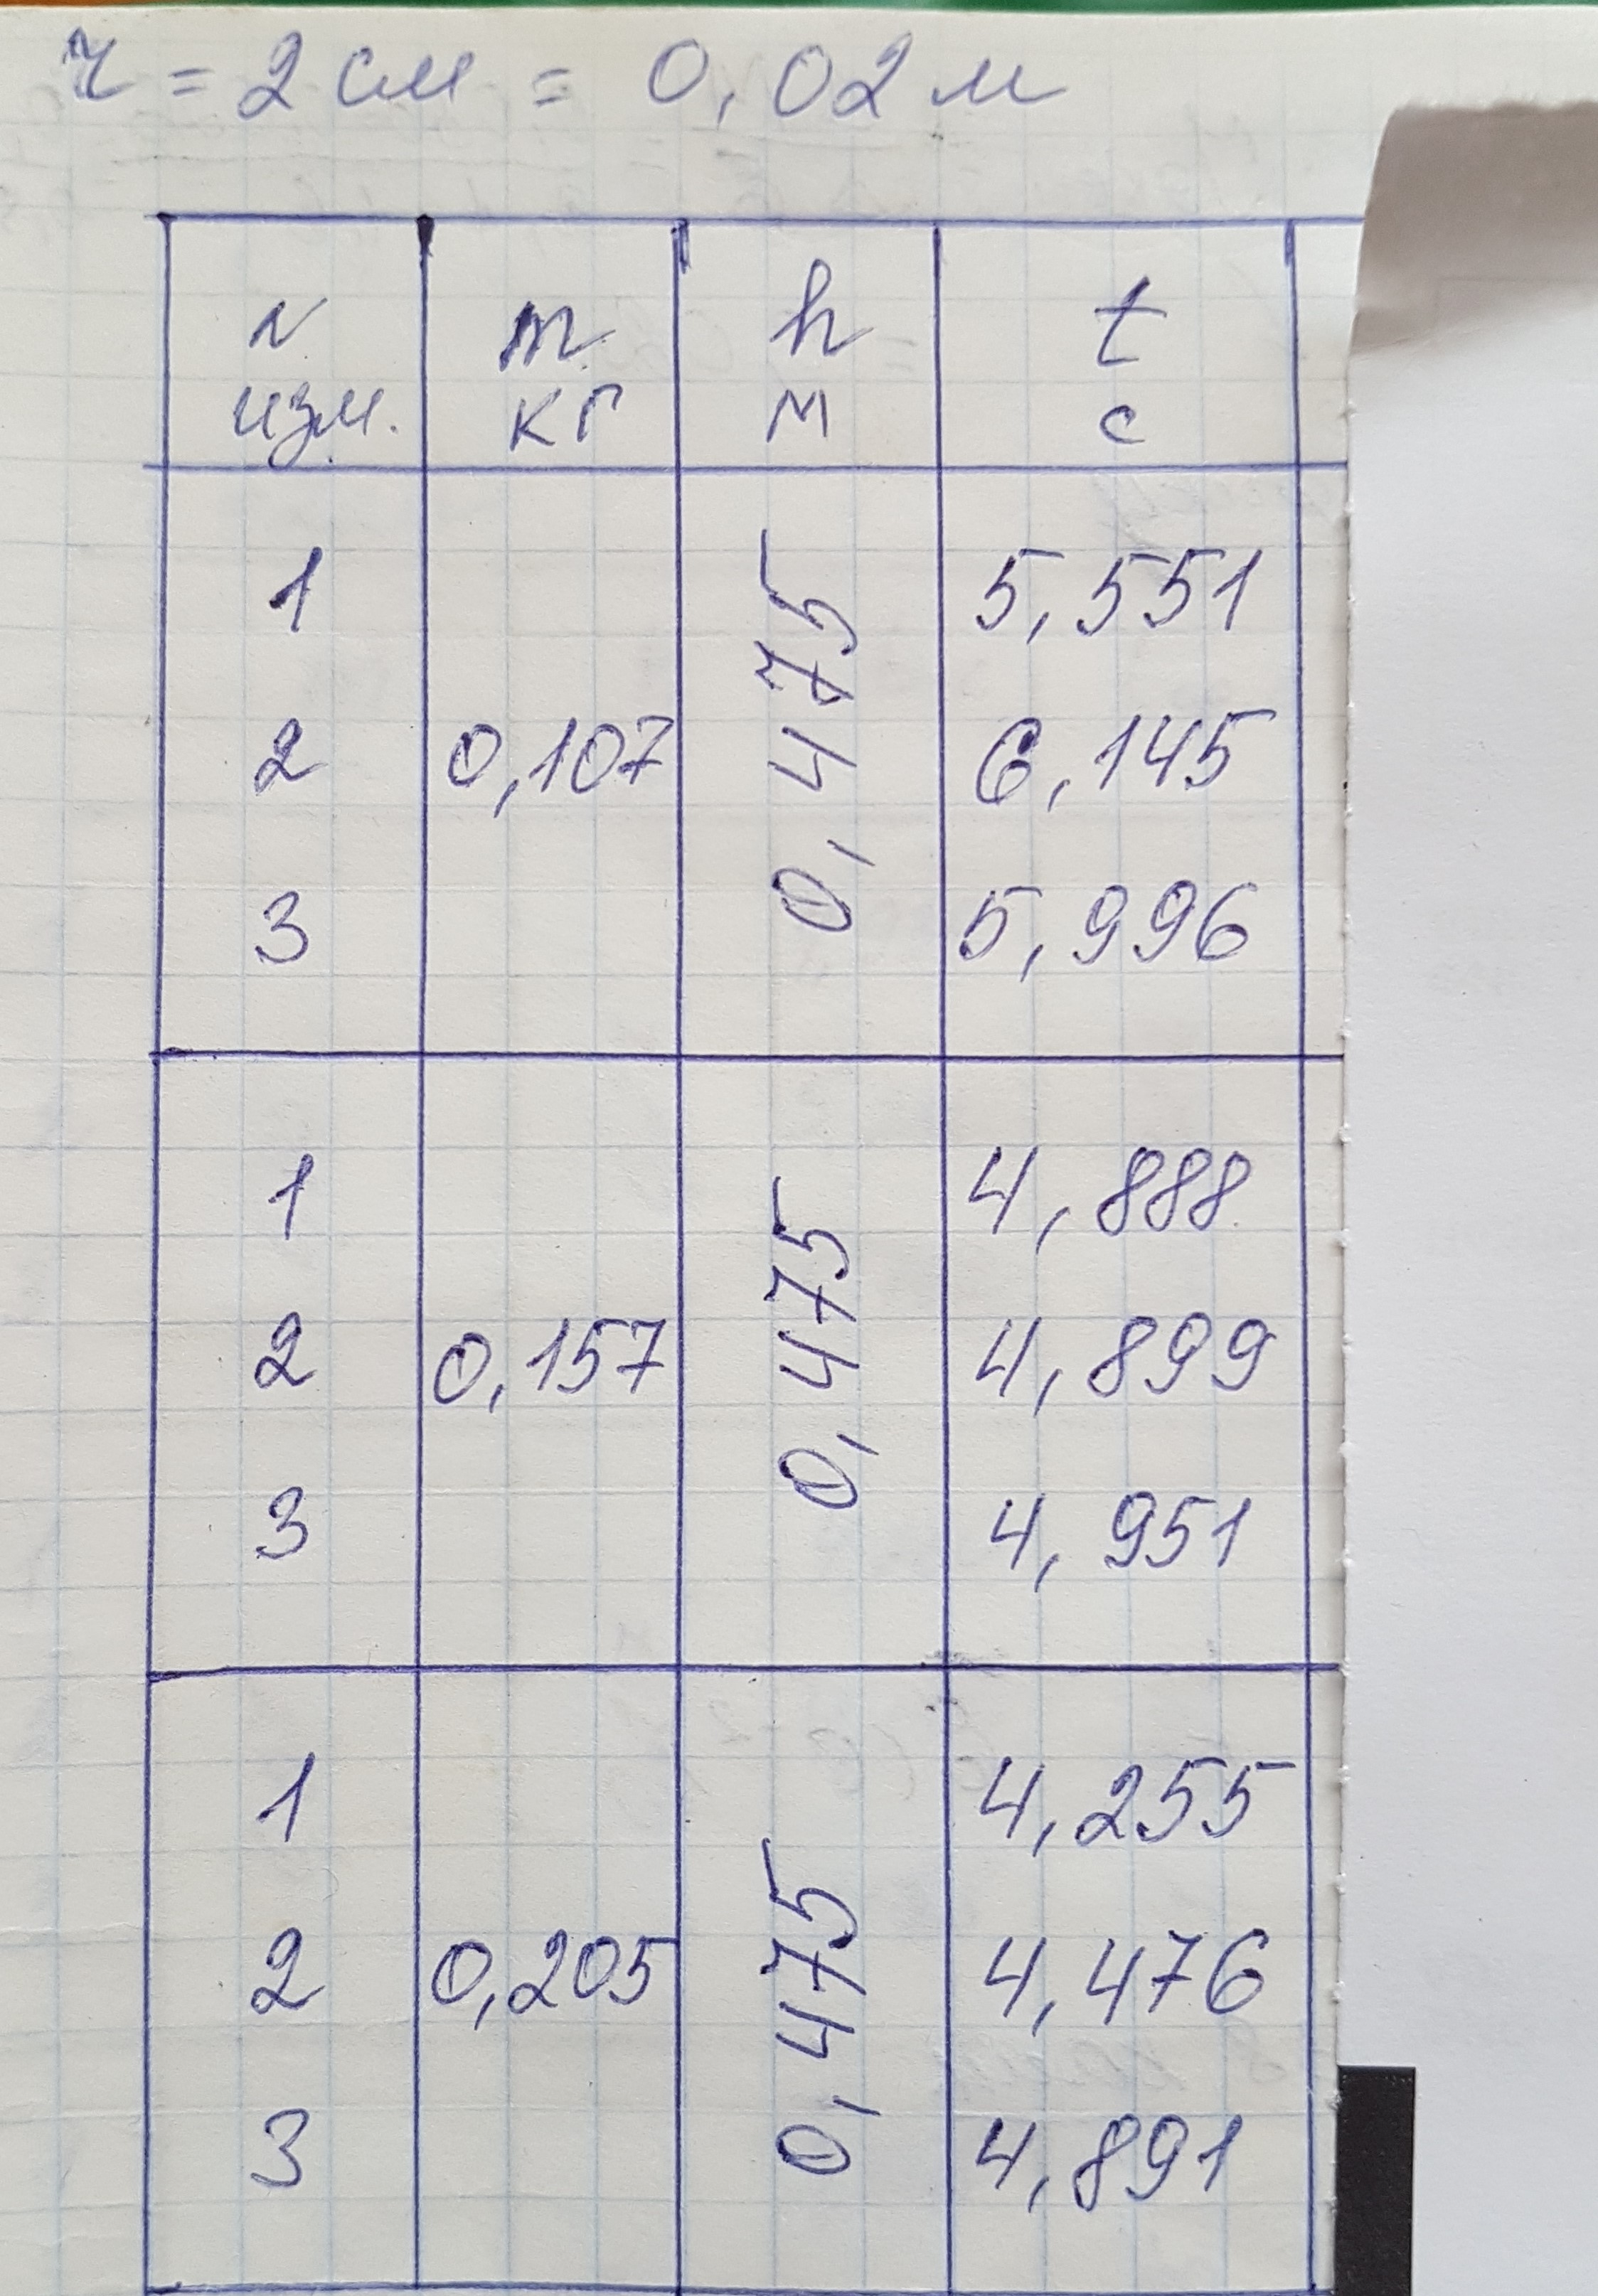 r = 2 см = 0,02 м
N m h t
изм. кг м с
1 5,551
2 0,107 0,475 6,145
3 5,996
1 4,888
2 0,157 0,475 4,899
3 4,951
1 4,255
2 0,205 0,475 4,476
3 4,891